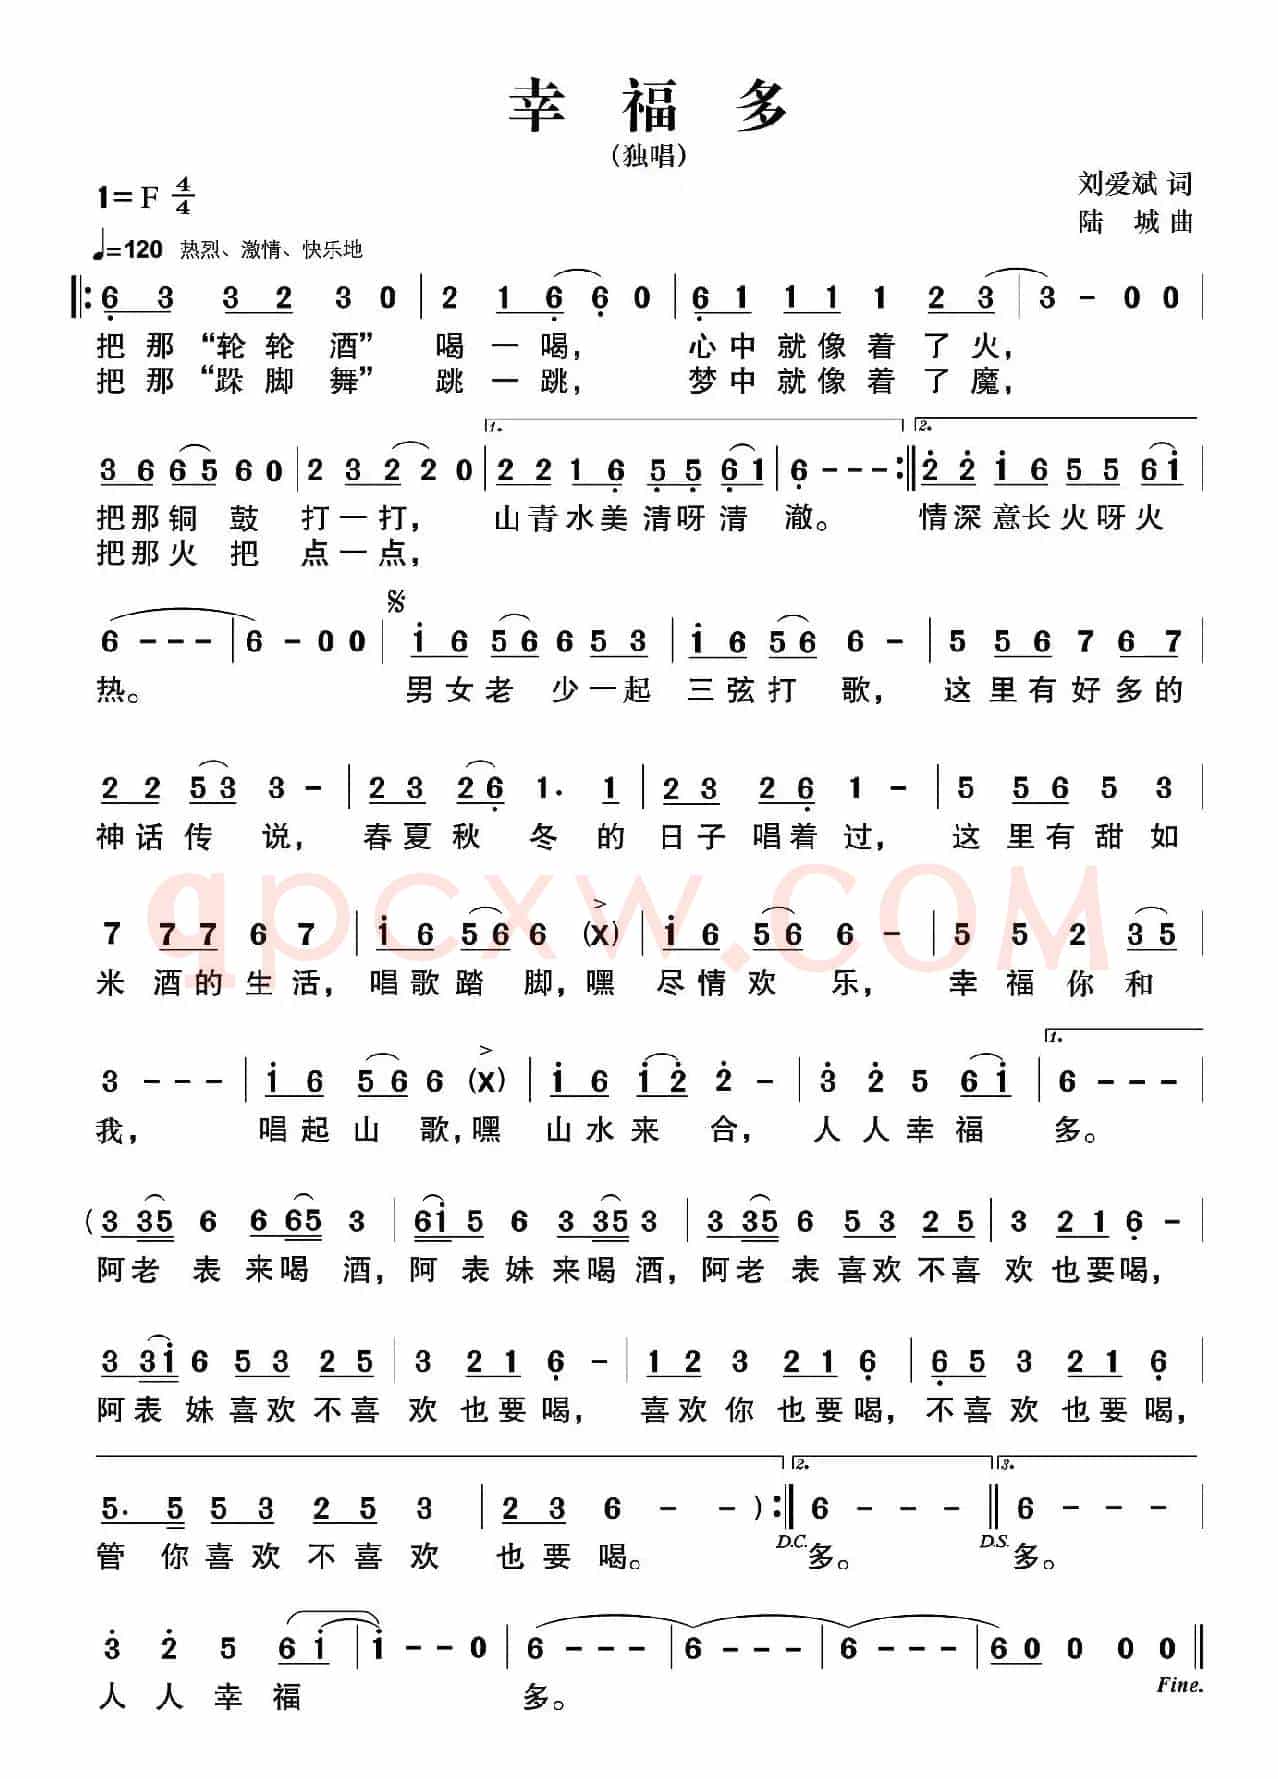 幸福多
（独唱）
1=F 4/4
刘爱斌 词
陆 城 曲
♩=120 热烈、激情、快乐地
‖: 6̣ 3 3 2 3 0 | 2 1 6̣ 6̣ 0 | 6̣ 1 1 1 1 2 3 | 3 - 0 0 |
把那“轮轮酒” 喝一喝， 心中就像着了火，
把那“跺脚舞” 跳一跳， 梦中就像着了魔，
1. 2.
3 6 6 5 6 0 | 2 3 2 2 0 | 2 2 1 6̣ 5̣ 5̣ 6̣ 1 | 6̣ - - - :‖ 2̇ 2̇ 1̇ 6 5 5 6 1̇ |
把那铜鼓 打一打， 山青水美清呀清澈。 情深意长火呀火
把那火把 点一点，
6 - - - | 6 - 0 0 | 𝄋 1̇ 6 5 6 6 5 3 | 1̇ 6 5 6 6 - | 5 5 6 7 6 7 |
热。 男女老少一起 三弦打歌， 这里有好多的
2 2 5 3 3 - | 2 3 2 6̣ 1. 1 | 2 3 2 6̣ 1 - | 5 5 6 5 3 |
神话传说， 春夏秋冬的 日子唱着过， 这里有甜如
qpcxw.COM
7 7 7 6 7 | 1̇ 6 5 6 6 (X) | 1̇ 6 5 6 6 - | 5 5 2 3 5 |
米酒的生活， 唱歌踏脚，嘿 尽情欢乐， 幸福你和
1.
3 - - - | 1̇ 6 5 6 6 (X) | 1̇ 6 1̇ 2̇ 2̇ - | 3̇ 2̇ 5 6 1̇ | 6 - - - |
我， 唱起山歌，嘿 山水来合， 人人幸福 多。
( 3 3 5 6 6 6 5 3 | 6 1̇ 5 6 3 3 5 3 | 3 3 5 6 5 3 2 5 | 3 2 1 6̣ - |
阿老表来喝酒，阿表妹来喝酒，阿老表喜欢不喜欢也要喝，
3 3 1̇ 6 5 3 2 5 | 3 2 1 6̣ - | 1 2 3 2 1 6̣ | 6̣ 5 3 2 1 6̣ |
阿表妹喜欢不喜欢也要喝， 喜欢你也要喝，不喜欢也要喝，
2. 3.
5. 5 5 3 2 5 3 | 2 3 6 - - ) :‖ 6 - - - ‖ 6 - - - |
D.C. D.S.
管你喜欢不喜欢 也要喝。 多。 多。
3̇ 2̇ 5 6 1̇ | 1̇ - - 0 | 6 - - - | 6 - - - | 6 - - - | 6 0 0 0 0 ‖
Fine.
人人幸福 多。